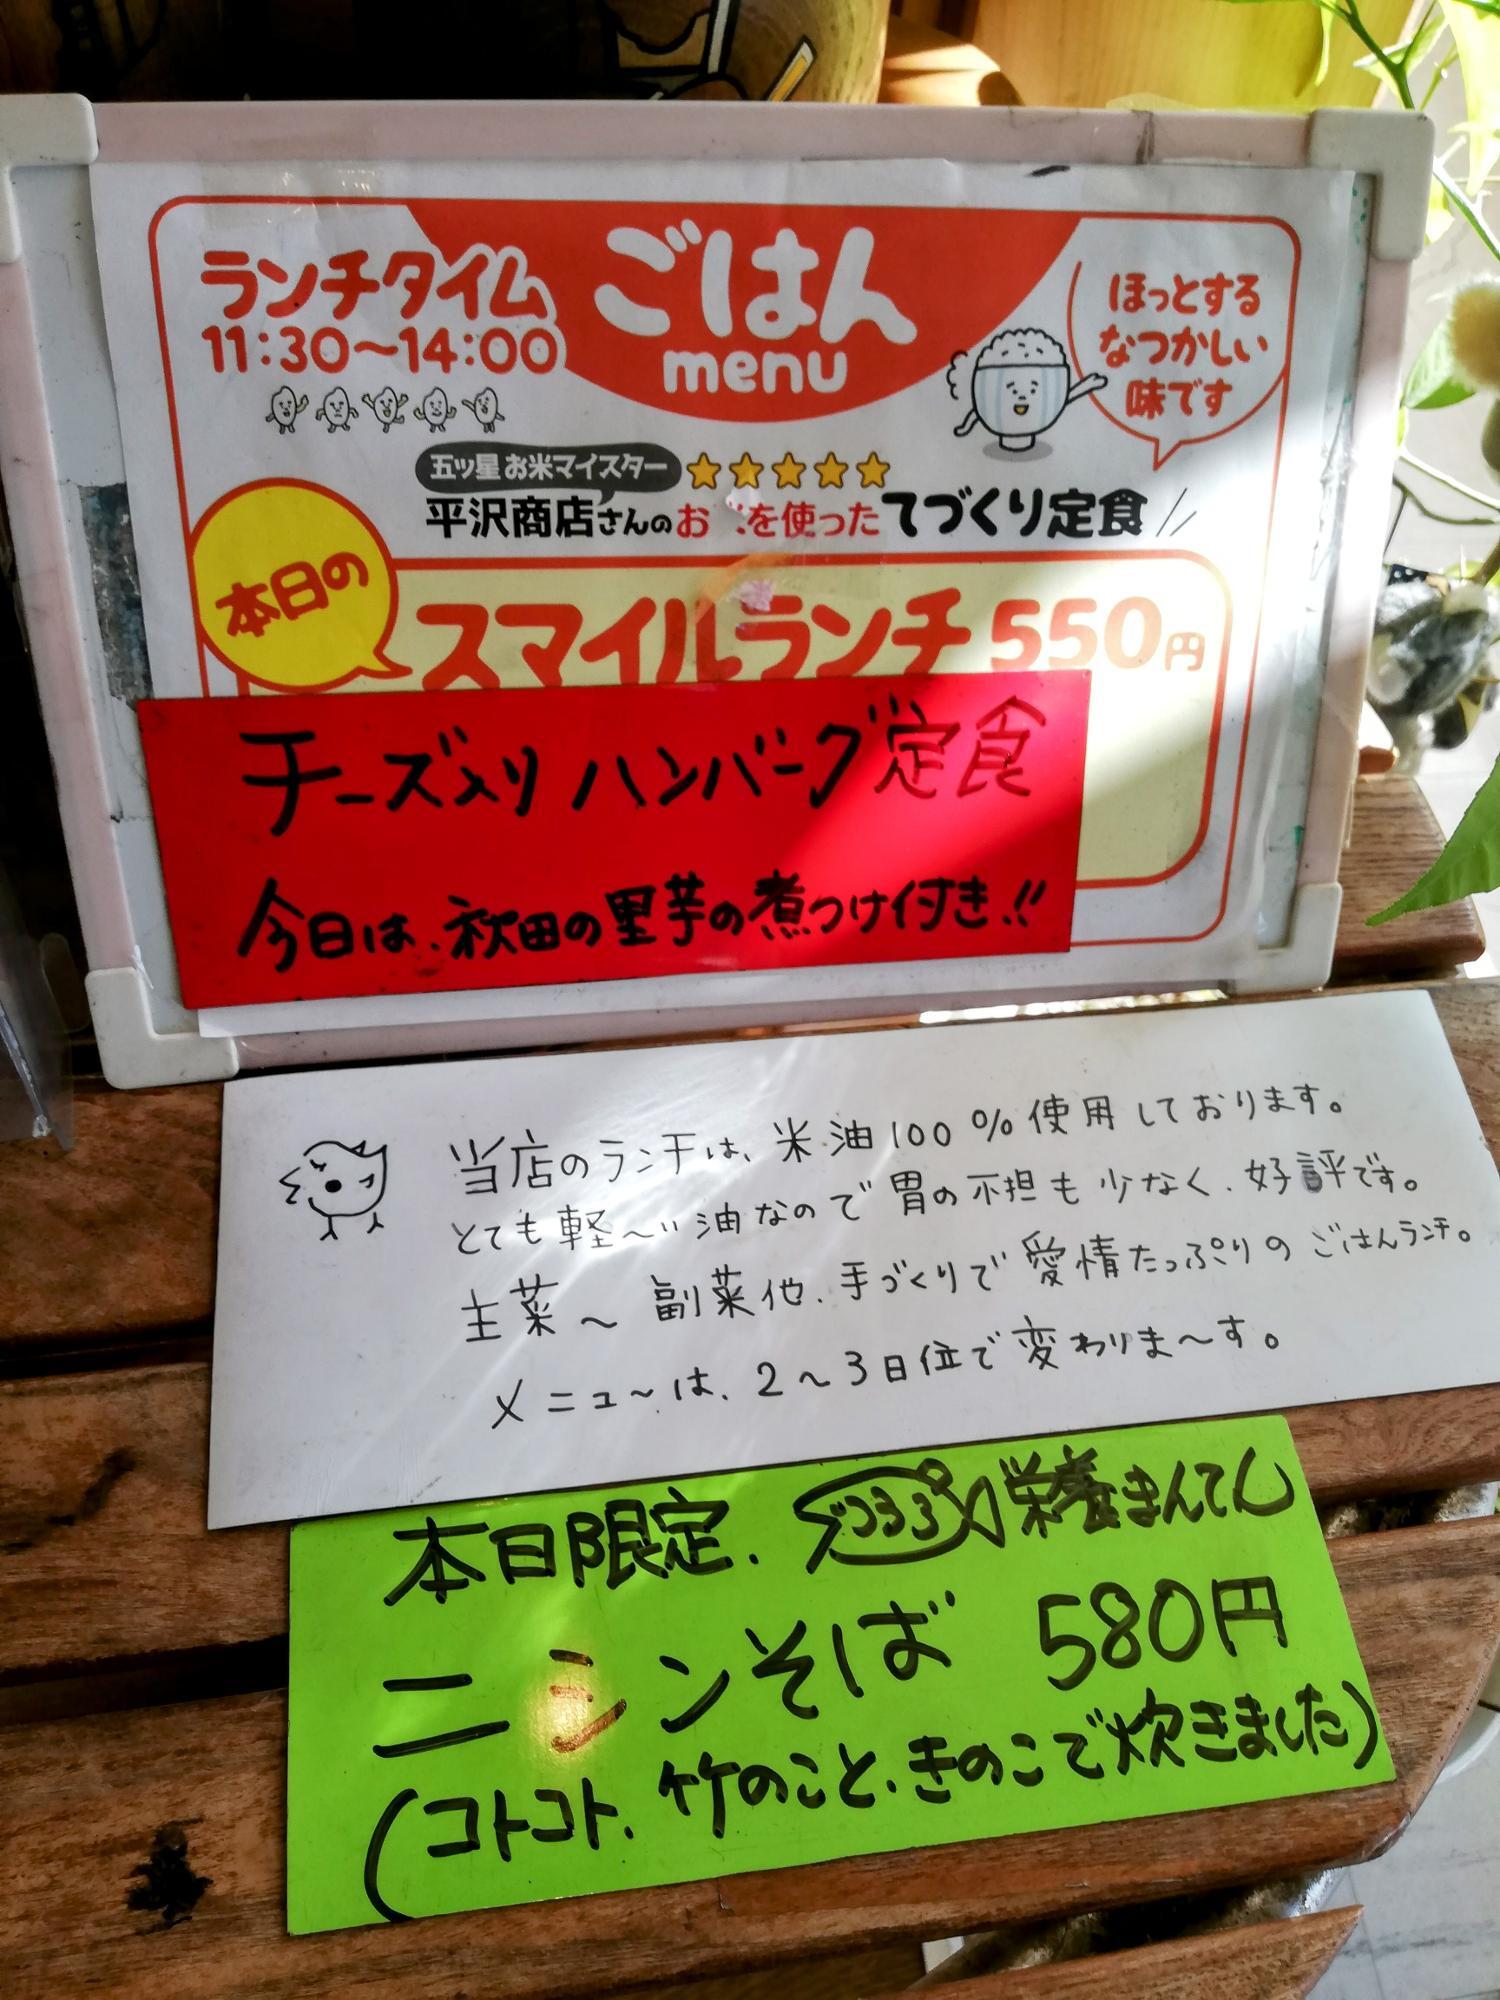 ランチタイム
11:30〜14:00
ごはん
menu
ほっとする
なつかしい
味です
五ッ星お米マイスター
平沢商店さんのお を使ったてづくり定食
本日の
スマイルランチ 550円
チーズ入りハンバーグ定食
今日は、秋田の里芋の煮つけ付き!!
当店のランチは、米油100%使用しております。
とても軽〜い油なので胃の不担も少なく、好評です。
主菜〜副菜他、手づくりで愛情たっぷりのごはんランチ。
メニューは、2〜3日位で変わりま〜す。
本日限定、
栄養まんてん
ニシンそば 580円
(コトコト、竹のこと、きのこで炊きました)